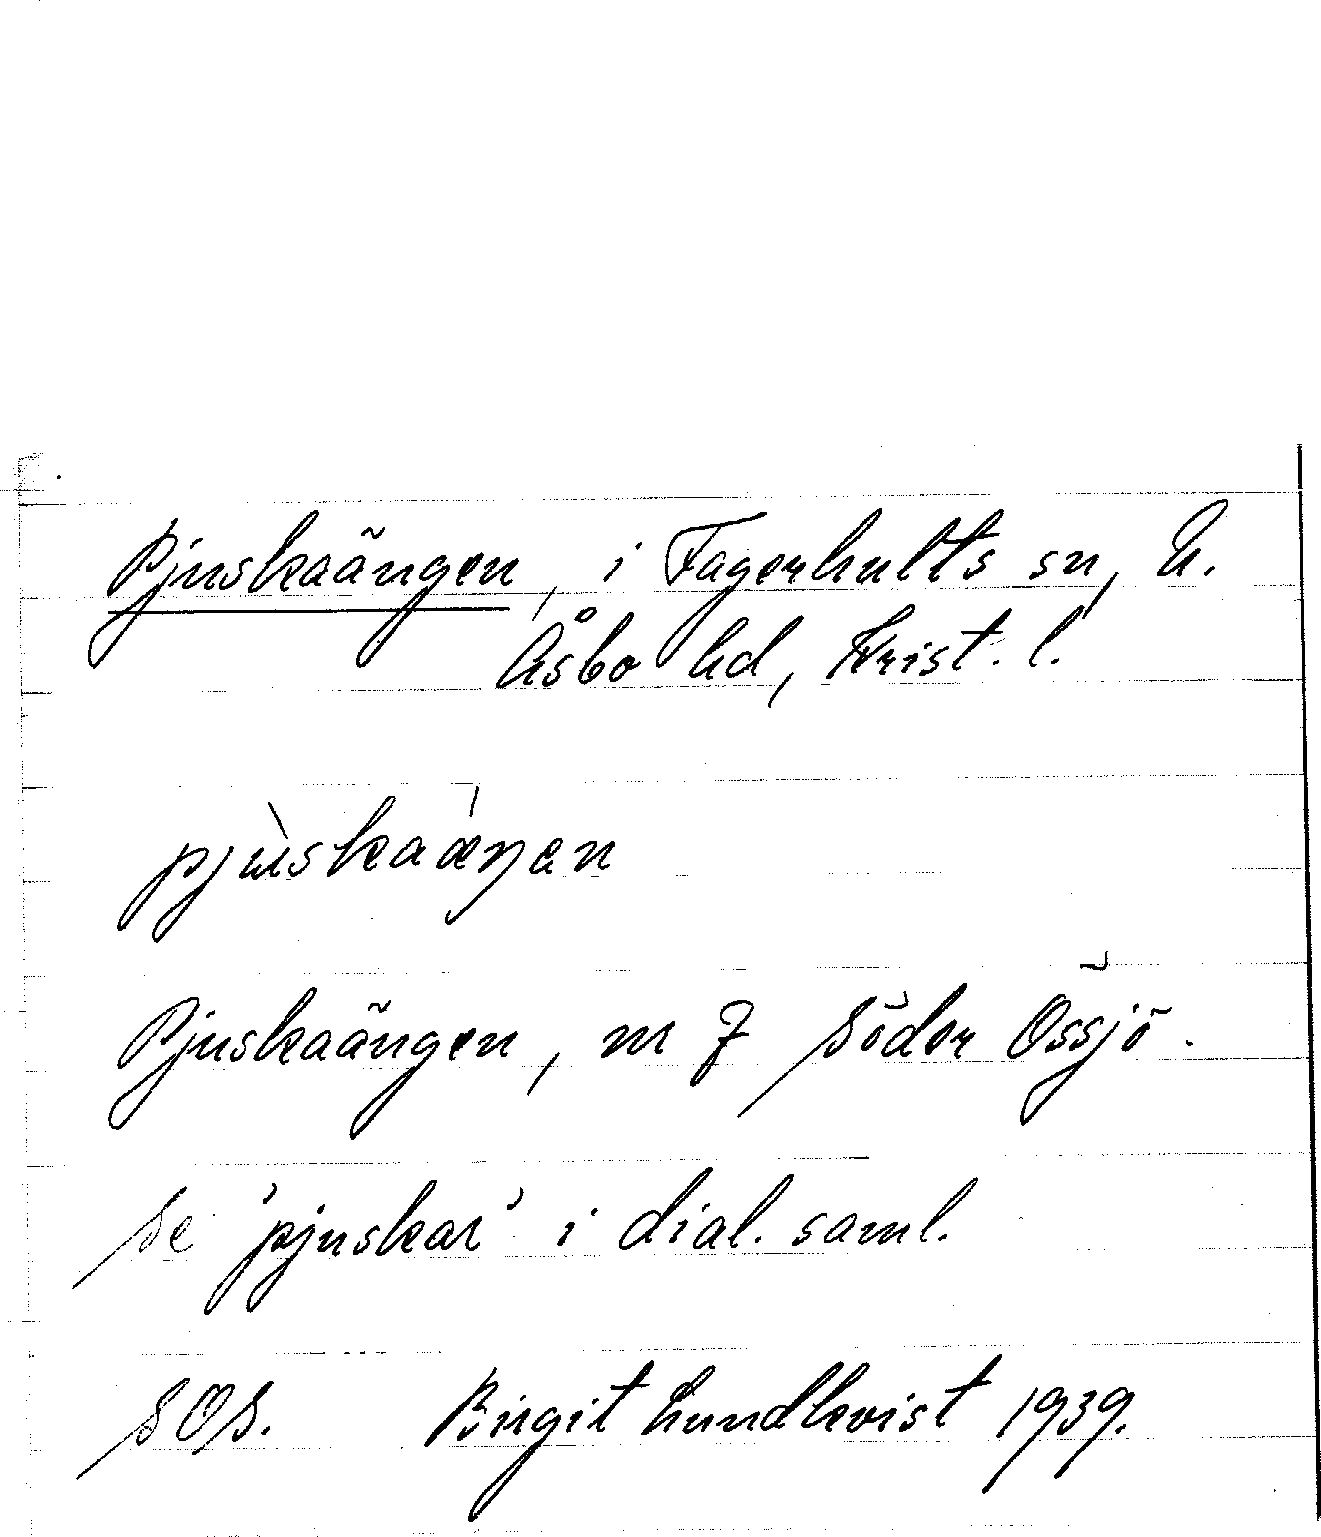 Pjuskaängen, i Fagerhults sn, N.
Åsbo hd, Krist. l.
pjùskaǽŋen
Pjuskaängen, m 7 Söder Össjö.
Se 'pjuskar' i dial. saml.
SOS. Birgit Lundkvist 1939.